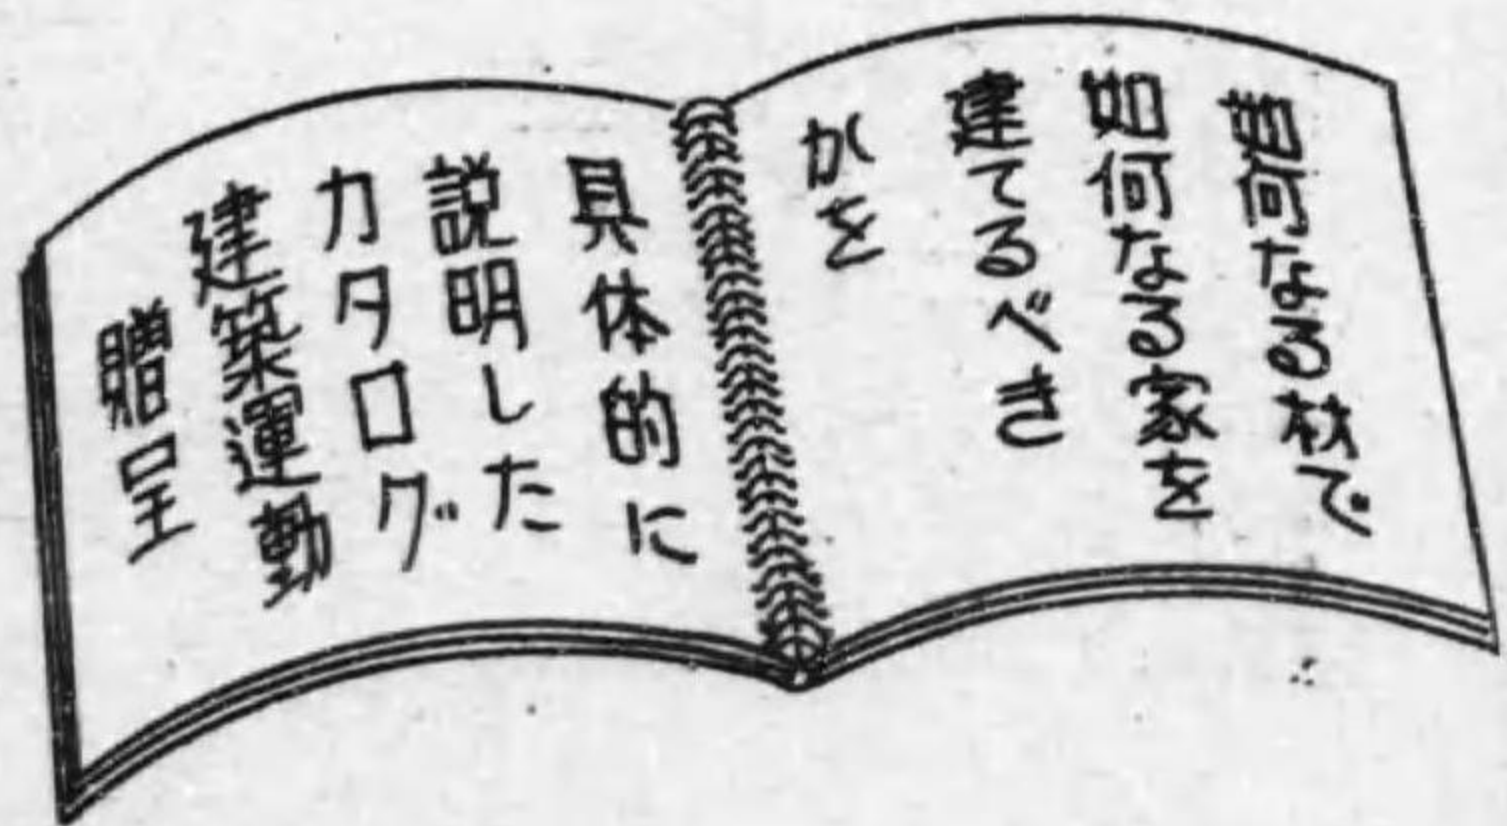 如何なる材で
如何なる家を
建てるべき
かを
具体的に
説明した
カタログ
建築運動
贈呈